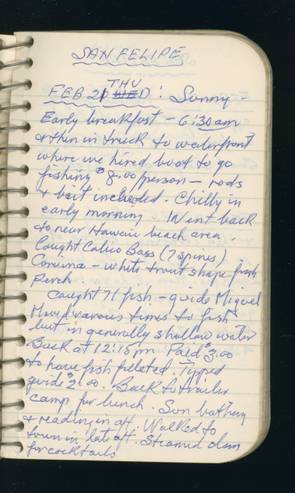 SAN FELIPE
THU
FEB 21 WED: Sunny -
Early breakfast - 6:30 am
& then in truck to waterfront
where we hired boat to go
fishing $8.00/person - rods
& bait included. Chilly in
early morning Went back
to near Hawaii beach area.
Caught Calico Bass (7 spines)
Corvina - white trout shape fish
Perch.
Caught 71 fish - guide Miguel
Moved various times to fish
but in generally shallow water
Back at 12:15 pm. Paid $3.00
to have fish filleted. Tipped
guide $2.00. Back to trailer
camp for lunch. Sun bathing
& reading in aft. Walked to
town in late aft. Steamed clams
for cocktails